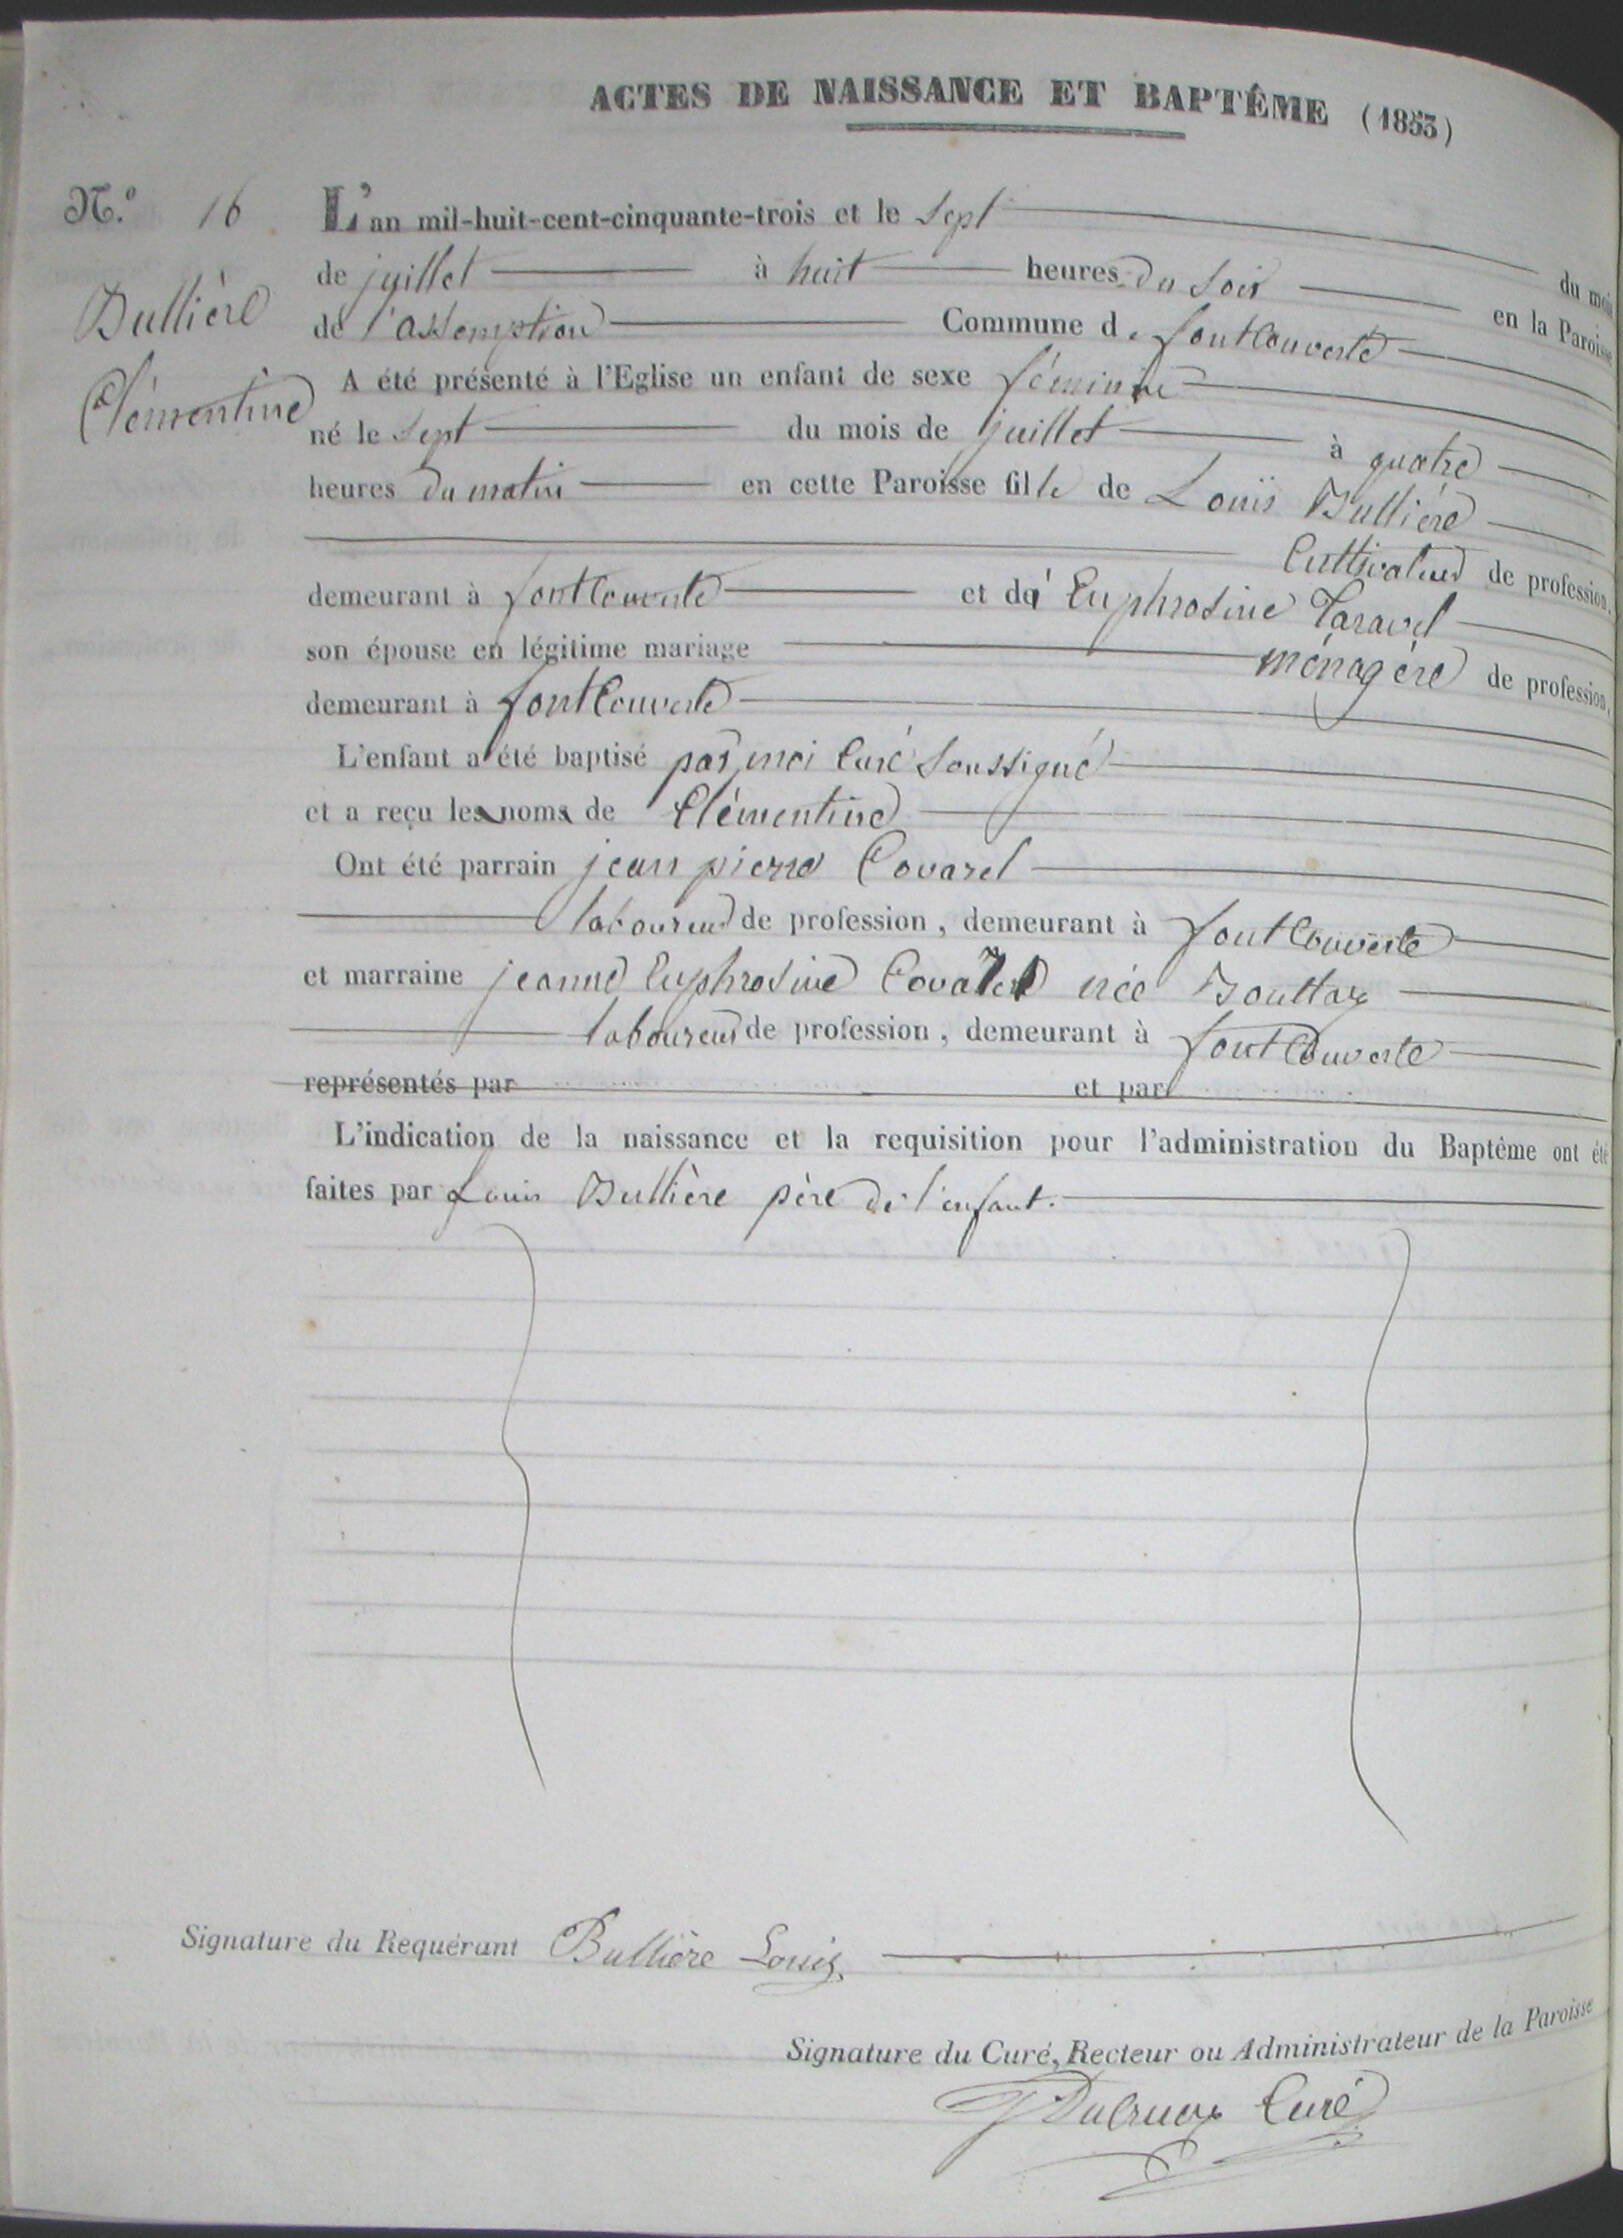 ACTES DE NAISSANCE ET BAPTÊME (1853)
N.º 16
Bullière
Clémentine
L'an mil-huit-cent-cinquante-trois et le sept du mois
de juillet à huit heures du soir en la Paroisse
de l'assomption Commune de fontcouverte
A été présenté à l'Eglise un enfant de sexe féminin
né le sept du mois de juillet à quatre
heures du matin en cette Paroisse fille de Louis Bullière
Cultivateur de profession,
demeurant à fontcouverte et de Euphrosine Taravel
son épouse en légitime mariage ménagère de profession,
demeurant à fontcouverte
L'enfant a été baptisé par moi Curé Soussigné
et a reçu les noms de Clémentine
Ont été parrain jean pierre Covarel
laboureur de profession, demeurant à fontcouverte
et marraine jeanne Euphrosine Covarel née Bouttaz
laboureur de profession, demeurant à fontcouverte
représentés par et par
L'indication de la naissance et la requisition pour l'administration du Baptême ont été
faites par Louis Bullière père de l'enfant.
Signature du Requérant Bullière Louis
Signature du Curé, Recteur ou Administrateur de la Paroisse
Curé